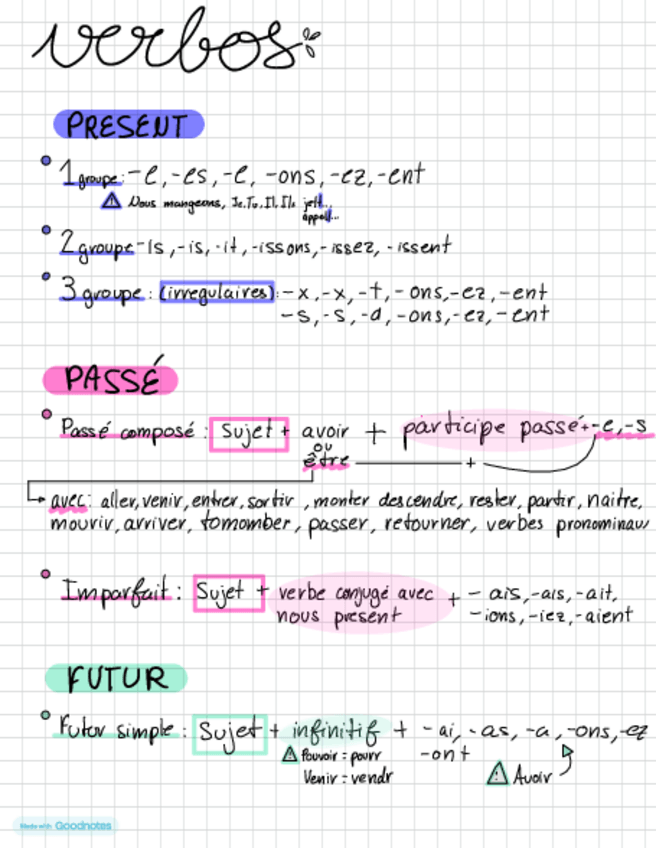 verbos:
PRESENT
1 groupe: -e, -es, -e, -ons, -ez, -ent
Nous mangeons, Je, Tu, Il, Ils jett...
appell...
2 groupe -is, -is, -it, -issons, -issez, -issent
3 groupe: (irregulaires): -x, -x, -t, -ons, -ez, -ent
-s, -s, -d, -ons, -ez, -ent
PASSÉ
Passé composé: Sujet + avoir + participe passé + -e, -s
ou
être +
avec: aller, venir, entrer, sortir, monter descendre, rester, partir, naitre,
mouvrir, arriver, tomomber, passer, retourner, verbes pronominau
Imparfait: Sujet + verbe conjugé avec + - ais, -ais, -ait,
nous present -ions, -iez, -aient
FUTUR
Futur simple: Sujet + infinitif + -ai, -as, -a, -ons, -ez
Pouvoir = pourr -ont
Venir = vendr Avoir
Made with Goodnotes